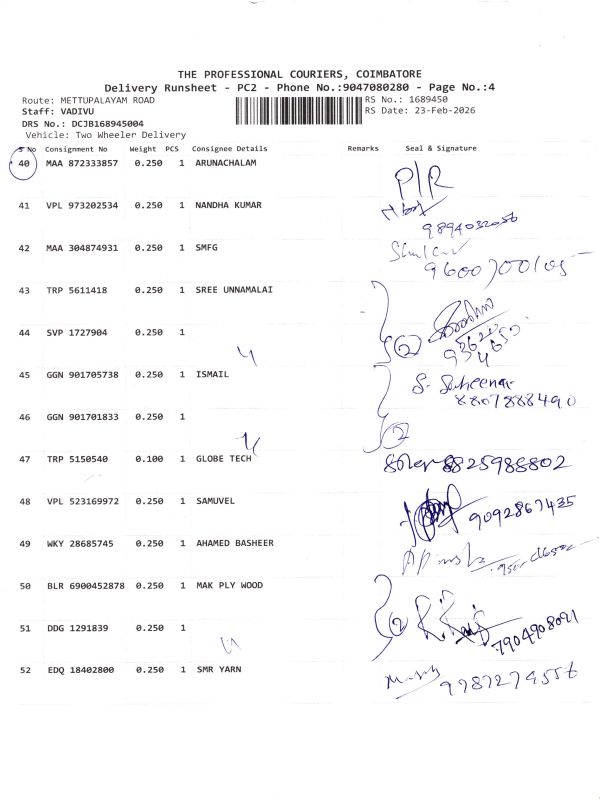 THE PROFESSIONAL COURIERS, COIMBATORE
Delivery Runsheet - PC2 - Phone No.:9047080280 - Page No.:4
Route: METTUPALAYAM ROAD RS No.: 1689450
Staff: VADIVU RS Date: 23-Feb-2026
DRS No.: DCJB168945004
Vehicle: Two Wheeler Delivery
S No Consignment No Weight PCS Consignee Details Remarks Seal & Signature
40 MAA 872333857 0.250 1 ARUNACHALAM P/R
41 VPL 973202534 0.250 1 NANDHA KUMAR
42 MAA 304874931 0.250 1 SMFG
43 TRP 5611418 0.250 1 SREE UNNAMALAI
44 SVP 1727904 0.250 1 2
45 GGN 901705738 0.250 1 ISMAIL
8807888490
46 GGN 901701833 0.250 1 2
47 TRP 5150540 0.100 1 GLOBE TECH 8825988802
48 VPL 523169972 0.250 1 SAMUVEL 9092867435
49 WKY 28685745 0.250 1 AHAMED BASHEER
50 BLR 6900452878 0.250 1 MAK PLY WOOD
51 DDG 1291839 0.250 1 2 7904908091
52 EDQ 18402800 0.250 1 SMR YARN